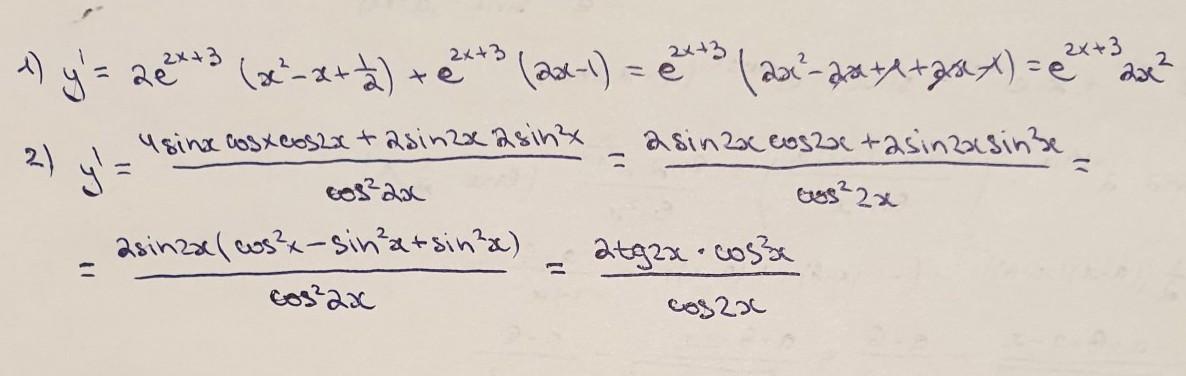 1) y' = 2e^{2x+3} (x² - x + 1/2) + e^{2x+3} (2x-1) = e^{2x+3} (2x² - 2x + 1 + 2x - 1) = e^{2x+3} 2x²
2) y' = (4 sinx cosx cos2x + 2sin2x 2sin²x) / cos²2x = (2 sin2x cos2x + 2sin2x sin²x) / cos²2x =
= 2sin2x (cos²x - sin²x + sin²x) / cos²2x = 2tg2x · cos²x / cos2x